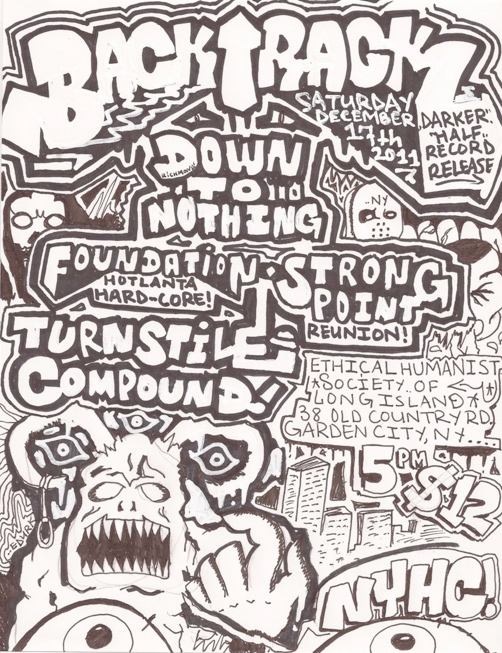 BACKTRACK
SATURDAY
DECEMBER
17th
2011
DARKER
HALF
RECORD
RELEASE
DOWN
RICHMOND
TO
NOTHING
NY
FOUNDATION
HOTLANTA
HARD-CORE!
STRONG
POINT
REUNION!
TURNSTILE
COMPOUND!
ETHICAL HUMANIST
*SOCIETY OF
LONG ISLAND*
38 OLD COUNTRY RD
GARDEN CITY, NY...
5PM
$12
NYHC!